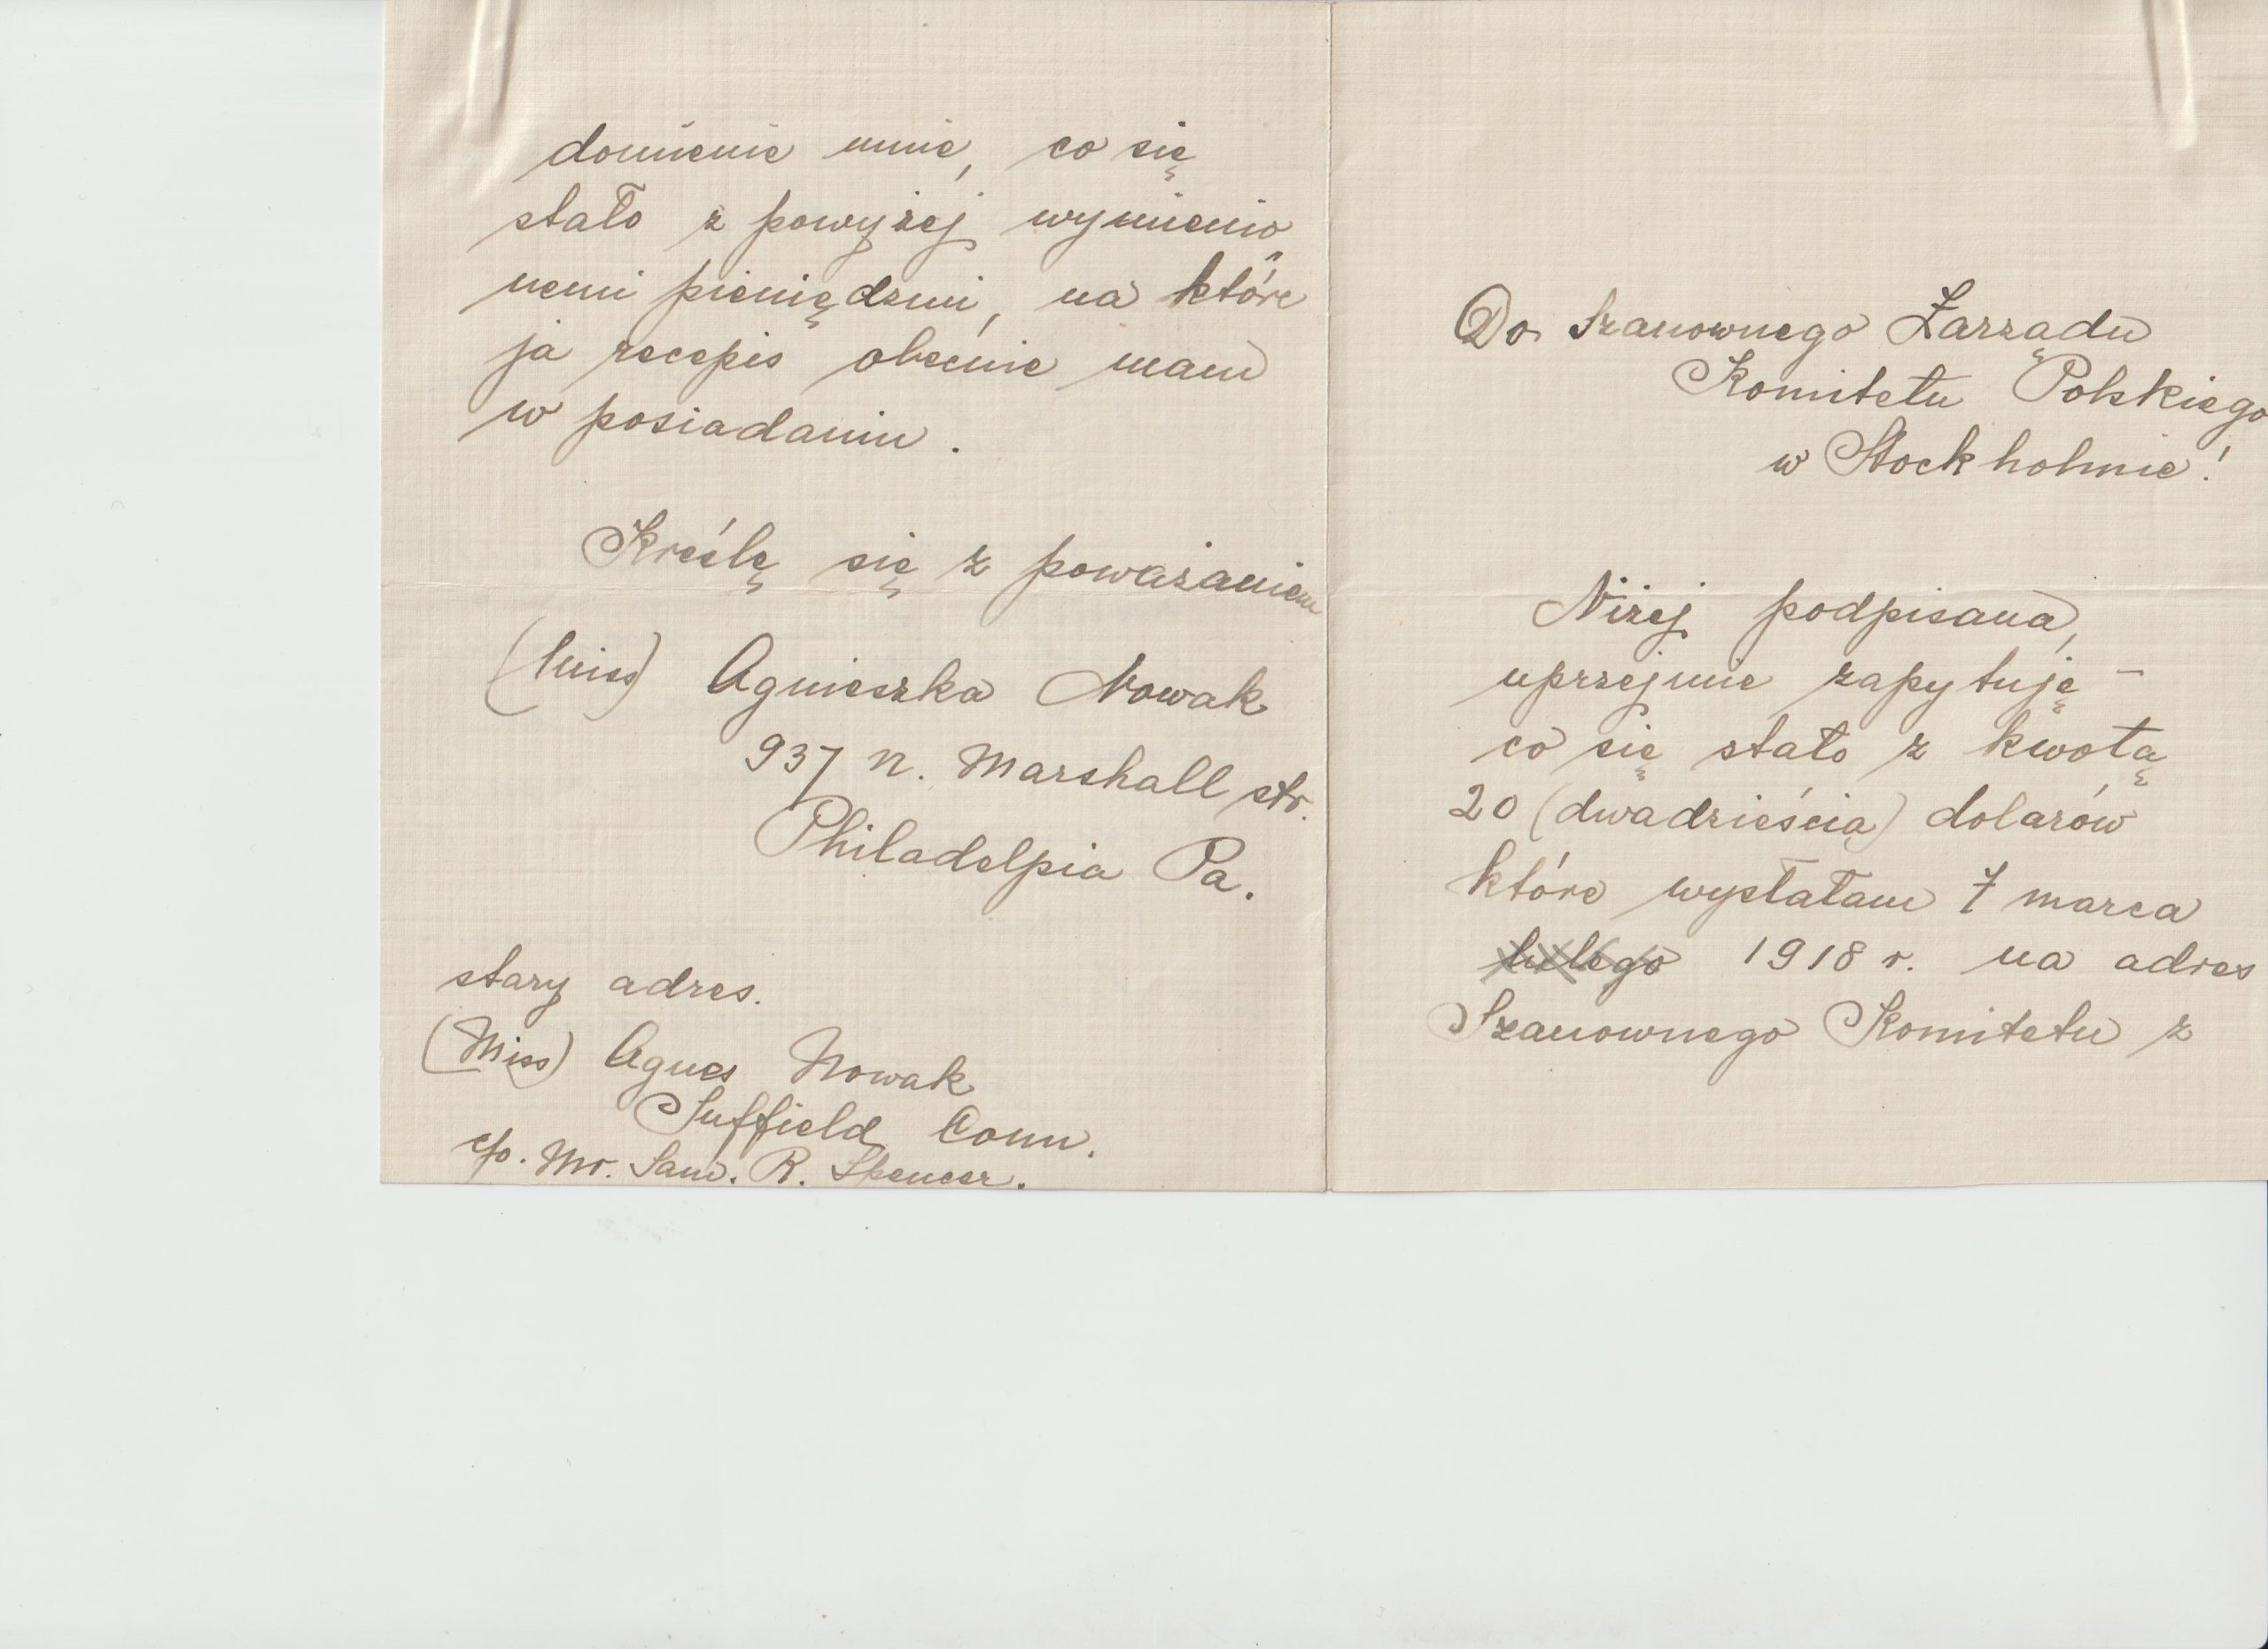 Do Szanownego Zarządu
Komitetu Polskiego
w Stockholmie!
Niżej podpisana,
uprzejmie zapytuję –
co się stało z kwotą
20 (dwadzieścia) dolarów
które wysłałam 7 marca
lutego 1918 r. na adres
Szanownego Komitetu z
domienie mnie, co się
stało z powyżej wymienio„
nemi pieniędzmi, na które
ja recepis obecnie mam
w posiadaniu.
Kreślę się z poważaniem
(Miss) Agnieszka Nowak
937 N. Marshall str.
Philadelpia Pa.
stary adres.
(Miss) Agnes Nowak
Suffield Conn.
c/o. Mr. Sam. R. Spencer.